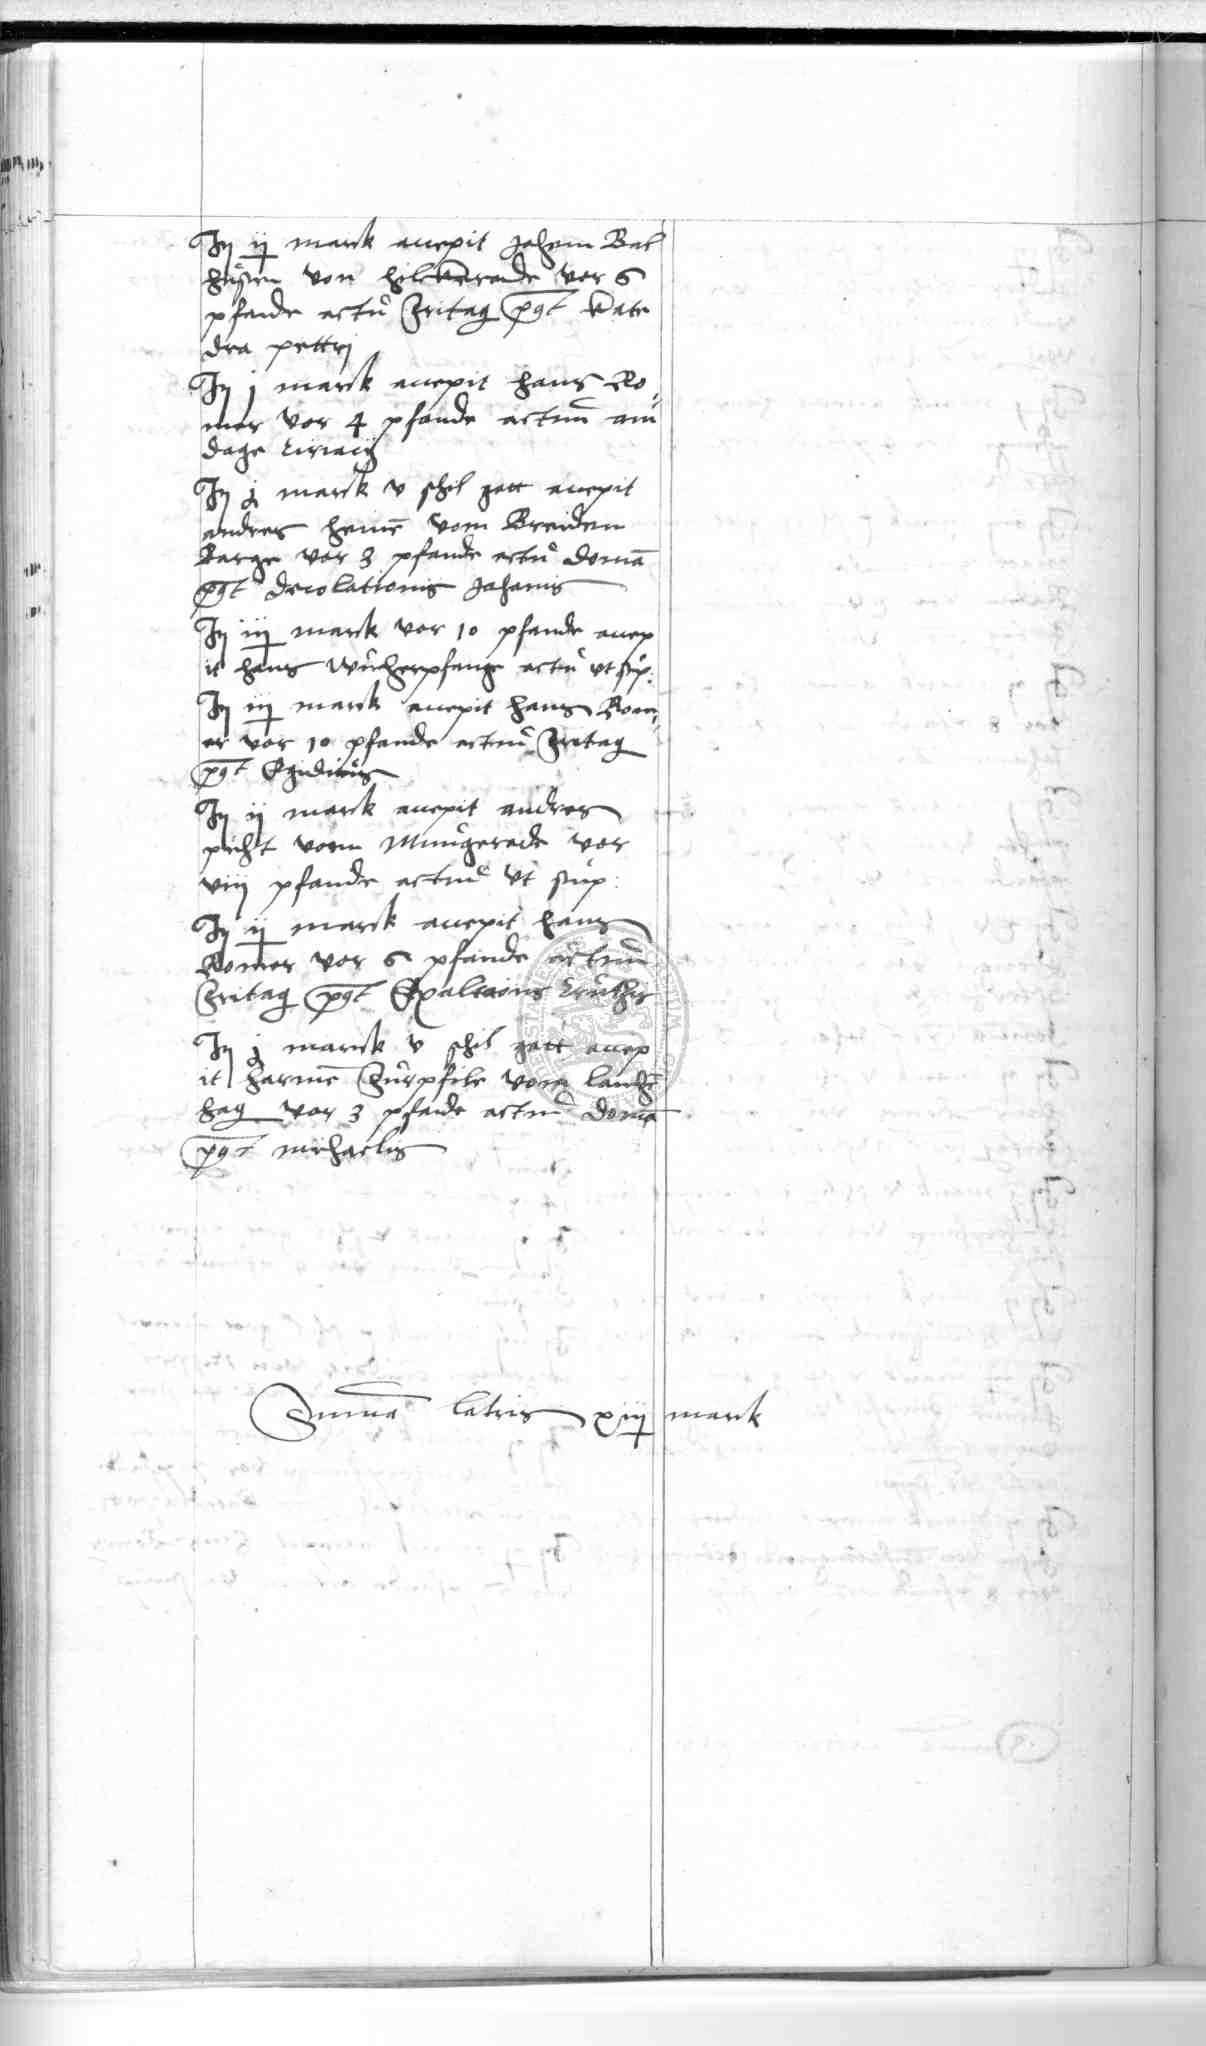 Itz ij marck accepit Johem Bal
husen von hilckerade vor 6
pfande actu fritag post kate
dra pettrj
Itz j marck accepit hans Ro,
mer vor 4 pfande actum am
dage Ciriacij
Itz j marck v schil gott accepit
andres heine vom Breiden
Barge vor 3 pfande actu doma
post decolationis Johanis
Itz iij marck vor 10 pfande accep
it hans Wucherpfange actu ut sup:
Itz iij marck accepit hans Rom,
er vor 10 pfande actum fritag
post Egidius
Itz ij marck accepit andres
picht vom Mungerade vor
viij pfande actum ut sup:
Itz ij marck accepit hans
Romer vor 6 pfande actum
fritag post Exaltaoins Cruthis
Itz j marck v schil gott accep
it harme fur pfile vom lange
hag vor 3 pfande actum doma
post michaelis
Suma latris xiij marck